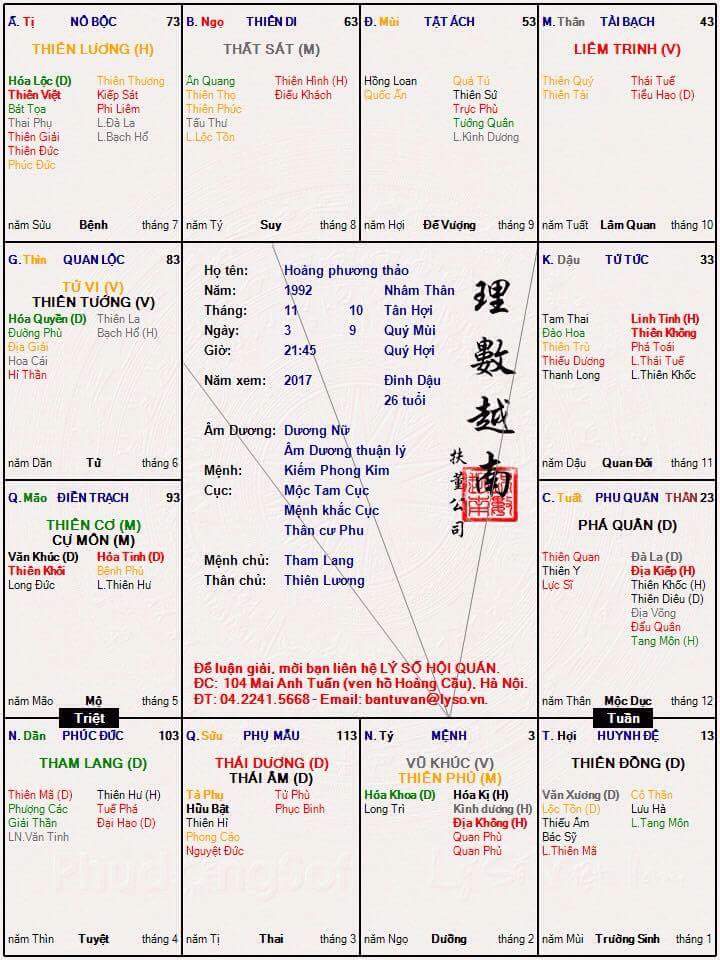 Ấ. Tị NÔ BỘC 73
THIÊN LƯƠNG (H)
Hóa Lộc (D) Thiên Thương
Thiên Việt Kiếp Sát
Bát Tọa Phi Liêm
Thai Phụ L.Đà La
Thiên Giải L.Bạch Hổ
Thiên Đức
Phúc Đức
năm Sửu Bệnh tháng 7
B. Ngọ THIÊN DI 63
THẤT SÁT (M)
Ân Quang Thiên Hình (H)
Thiên Thọ Điếu Khách
Thiên Phúc
Tấu Thư
L.Lộc Tồn
năm Tý Suy tháng 8
Đ. Mùi TẬT ÁCH 53
Hồng Loan Quả Tú
Quốc Ấn Thiên Sứ
Trực Phù
Tướng Quân
L.Kình Dương
năm Hợi Đế Vượng tháng 9
M. Thân TÀI BẠCH 43
LIÊM TRINH (V)
Thiên Quý Thái Tuế
Thiên Tài Tiểu Hao (D)
năm Tuất Lâm Quan tháng 10
G. Thìn QUAN LỘC 83
TỬ VI (V)
THIÊN TƯỚNG (V)
Hóa Quyền (D) Thiên La
Đường Phù Bạch Hổ (H)
Địa Giải
Hoa Cái
Hỉ Thần
năm Dần Tử tháng 6
Họ tên: Hoàng phương thảo
Năm: 1992 Nhâm Thân
Tháng: 11 10 Tân Hợi
Ngày: 3 9 Quý Mùi
Giờ: 21:45 Quý Hợi
Năm xem: 2017 Đinh Dậu
26 tuổi
Âm Dương: Dương Nữ
Âm Dương thuận lý
Mệnh: Kiếm Phong Kim
Cục: Mộc Tam Cục
Mệnh khắc Cục
Thân cư Phu
Mệnh chủ: Tham Lang
Thân chủ: Thiên Lương
理數越南
扶董公司
Để luận giải, mời bạn liên hệ LÝ SỐ HỘI QUÁN.
ĐC: 104 Mai Anh Tuấn (ven hồ Hoàng Cầu), Hà Nội.
ĐT: 04.2241.5668 - Email: bantuvan@lyso.vn.
K. Dậu TỬ TỨC 33
Tam Thai Linh Tinh (H)
Đào Hoa Thiên Không
Thiên Trù Phá Toái
Thiếu Dương L.Thái Tuế
Thanh Long L.Thiên Khốc
năm Dậu Quan Đới tháng 11
Q. Mão ĐIỀN TRẠCH 93
THIÊN CƠ (M)
CỰ MÔN (M)
Văn Khúc (D) Hỏa Tinh (D)
Thiên Khôi Bệnh Phù
Long Đức L.Thiên Hư
năm Mão Mộ tháng 5
C. Tuất PHU QUÂN THÂN 23
PHÁ QUÂN (D)
Thiên Quan Đà La (D)
Thiên Y Địa Kiếp (H)
Lực Sĩ Thiên Khốc (H)
Thiên Diêu (D)
Địa Võng
Đẩu Quân
Tang Môn (H)
năm Thân Mộc Dục tháng 12
Triệt
Tuần
N. Dần PHÚC ĐỨC 103
THAM LANG (D)
Thiên Mã (D) Thiên Hư (H)
Phượng Các Tuế Phá
Giải Thần Đại Hao (D)
LN.Văn Tinh
năm Thìn Tuyệt tháng 4
Q. Sửu PHỤ MẪU 113
THÁI DƯƠNG (D)
THÁI ÂM (D)
Tả Phụ Tử Phù
Hữu Bật Phục Binh
Thiên Hỉ
Phong Cáo
Nguyệt Đức
năm Tị Thai tháng 3
N. Tý MỆNH 3
VŨ KHÚC (V)
THIÊN PHỦ (M)
Hóa Khoa (D) Hóa Kị (H)
Long Trì Kình dương (H)
Địa Không (H)
Quan Phù
Quan Phủ
năm Ngọ Dưỡng tháng 2
T. Hợi HUYNH ĐỆ 13
THIÊN ĐỒNG (D)
Văn Xương (D) Cô Thần
Lộc Tồn (D) Lưu Hà
Thiếu Âm L.Tang Môn
Bác Sỹ
L.Thiên Mã
năm Mùi Trường Sinh tháng 1